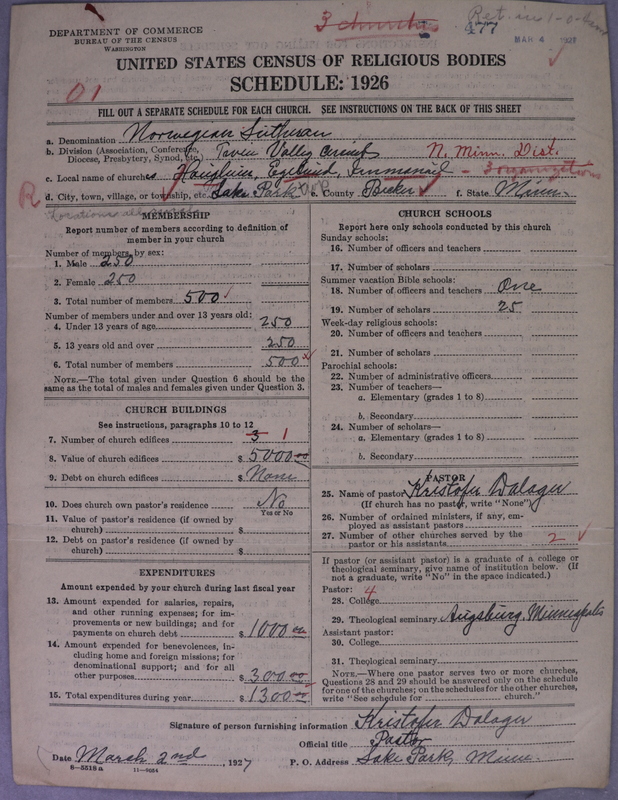 DEPARTMENT OF COMMERCE
BUREAU OF THE CENSUS
WASHINGTON
3 churches
477
Ret. in
MAR 4 1927
UNITED STATES CENSUS OF RELIGIOUS BODIES
SCHEDULE: 1926
01
FILL OUT A SEPARATE SCHEDULE FOR EACH CHURCH. SEE INSTRUCTIONS ON THE BACK OF THIS SHEET
a. Denomination Norwegian Lutheran
b. Division (Association, Conference, Diocese, Presbytery, Synod, etc.) Valley N. Minn. Dist.
c. Local name of churches Egelund, Immanuel - 3 organizations
R d. City, town, village, or township, etc. Lake Park e. County Becker f. State Minn.
MEMBERSHIP
Report number of members according to definition of
member in your church
Number of members by sex:
1. Male 250
2. Female 250
3. Total number of members 500
Number of members under and over 13 years old:
4. Under 13 years of age 250
5. 13 years old and over 250
6. Total number of members 500
NOTE.—The total given under Question 6 should be the
same as the total of males and females given under Question 3.
CHURCH BUILDINGS
See instructions, paragraphs 10 to 12
7. Number of church edifices 3 1
8. Value of church edifices $ 5000 00
9. Debt on church edifices $ None
10. Does church own pastor's residence No
Yes or No
11. Value of pastor's residence (if owned by
church) $
12. Debt on pastor's residence (if owned by
church) $
EXPENDITURES
Amount expended by your church during last fiscal year
13. Amount expended for salaries, repairs,
and other running expenses; for im-
provements or new buildings; and for
payments on church debt $ 1000 00
14. Amount expended for benevolences, in-
cluding home and foreign missions; for
denominational support; and for all
other purposes $ 300 00
15. Total expenditures during year $ 1300 00
CHURCH SCHOOLS
Report here only schools conducted by this church
Sunday schools:
16. Number of officers and teachers
17. Number of scholars
Summer vacation Bible schools:
18. Number of officers and teachers One
19. Number of scholars 25
Week-day religious schools:
20. Number of officers and teachers
21. Number of scholars
Parochial schools:
22. Number of administrative officers
23. Number of teachers—
a. Elementary (grades 1 to 8)
b. Secondary
24. Number of scholars—
a. Elementary (grades 1 to 8)
b. Secondary
PASTOR
25. Name of pastor Kristofer Dalager
(If church has no pastor, write "None")
26. Number of ordained ministers, if any, em-
ployed as assistant pastors
27. Number of other churches served by the
pastor or his assistants 2
If pastor (or assistant pastor) is a graduate of a college or
theological seminary, give name of institution below. (If
not a graduate, write "No" in the space indicated.)
Pastor: 4
28. College
29. Theological seminary Augsburg, Minneapolis
Assistant pastor:
30. College
31. Theological seminary
NOTE.—Where one pastor serves two or more churches,
Questions 28 and 29 should be answered only on the schedule
for one of the churches; on the schedules for the other churches,
write "See schedule for church."
Signature of person furnishing information Kristofer Dalager
Official title Pastor
Date March 2nd, 1927 P. O. Address Lake Park, Minn.
8—5518 a 11—9054